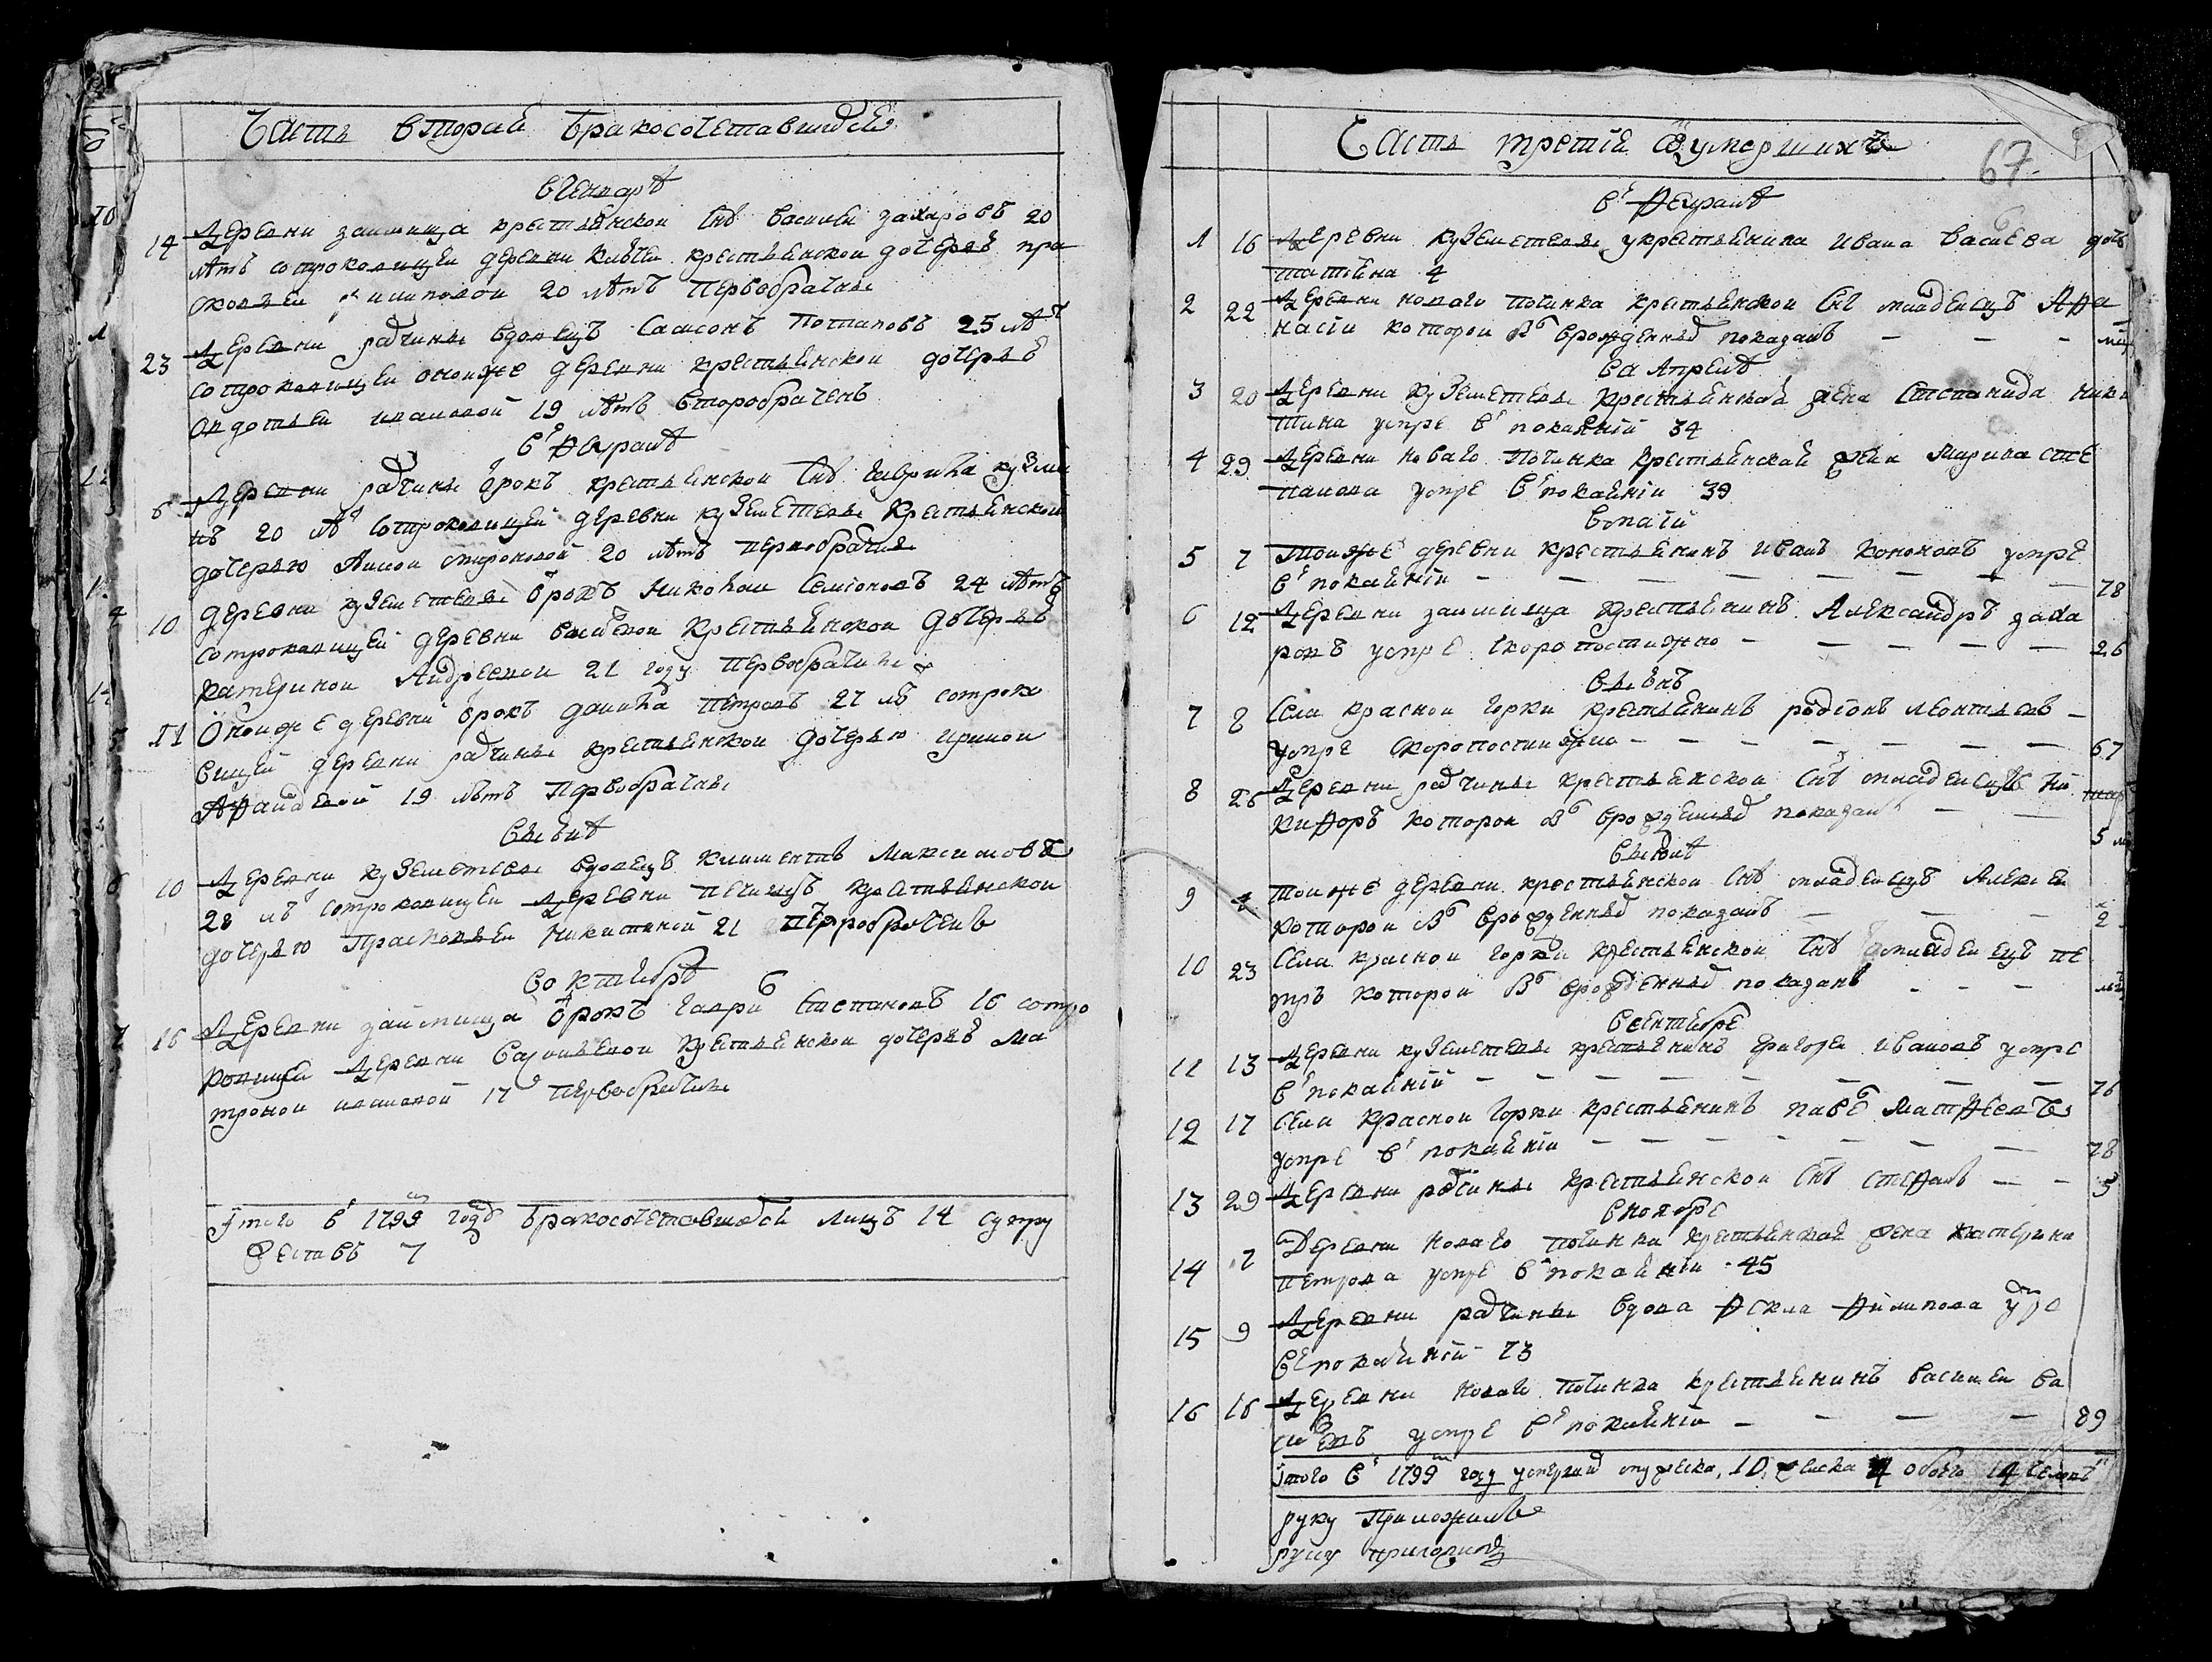 Часть вторая бракосочетавшихся
В генваре
14 Деревни займища крестьянской снъ Василеи Захаровъ 20
летъ сотроковицеи деревни крестьянской дочерью пра
сковьеи Филиповой 20 летъ первобрачные
1
23 Деревни радчины вдовецъ Самсонъ Потаповъ 25 летъ
сотроковицеи оной же деревни крестьянской дочерью
Авдотьеи Ивановой 19 летъ второбраченъ
В феврале
6 Деревни радчины отрокъ крестьянской снъ Гаврила Кузми
нъ 20 ле сотроковицей деревни куземетевы крестьянской
дочерью Анной Мироновой 20 летъ первобрачные
4
10 Деревни куземетевы отрокъ Николаи Семионовъ 24 летъ
сотроковицей деревни крестьянской дочерью
Катериной Андреевой 21 году первобрачные
5
11 Оной же деревни отрокъ Данила Петровъ 27 ле сотроко
вицей деревни радчины крестьянской дочерью Ириной
19 летъ первобрачные
В июне
6
10 Деревни куземетевы вдовецъ Климентъ Максимовъ
28 ле сотроковицеи деревни печищъ крестьянской
дочерью Прасковьеи Никитиной 21 второбраченъ
В октябре
7
16 Деревни займища отрокъ Гаври Степановъ 16 сотро
ковицей деревни крестьянской дочерью Ма
троной Ивановой 17 первобрачные
Итого в 1799 годе бракосочетавшихся лицъ 14 супру
жествъ 7
Часть третiя о умершихъ
67.
В феврале
1 16 Деревни куземетевы у крестьянина Ивана Васиева дочь
Татияна 4
2 22 Деревни новаго починка крестьянской снъ младенецъ Афа
насiи которой в рожденныхъ показанъ — — —
В апреле
3 20 Деревни куземетевы крестьянская жена Степанида Ники
тина умре в покаянiи 34
4 29 Деревни новаго починка крестьянская жена Марина Сте
панова умре в покаянiи 39
В маiи
5 7 Той же деревни крестьянинъ Иванъ Кононовъ умре
в покаянiи — — — — — — 78
6 12 Деревни займища крестьянинъ Александръ Заха
ровъ умре скоропостижно — — — — — 26
В июне
7 8 Села красной горки крестьянинъ Родiонъ Леонтьевъ —
умре скоропостижно — — — — — — 67
8 26 Деревни радчины крестьянской снъ младенецъ Ни
кифоръ которой в рожденныхъ показанъ — — 5
В июле
9 4 Той же деревни крестьянской снъ младенецъ Алексеи
которой в рожденныхъ показанъ — — — 2
10 23 Села красной горки крестьянской снъ младенецъ пе
тръ которой в рожденныхъ показанъ — — —
В сентябре
11 13 Деревни куземетевы крестьянинъ Григореи Ивановъ умре
в покаянiи — — — — — — — 76
12 17 Села красной горки крестьянинъ паве Матфеевъ
умре в покаянiи — — — — — — — 78
13 29 Деревни радчины крестьянской снъ Стефанъ — — 5
В ноябре
14 7 Деревни новаго починка крестьянская жена Катерина
Петрова умре в покаянiи 45
15 9 Деревни радчины вдова Фекла Филипова умре
в покаянiи 73
16 16 Деревни новаго починка крестьянинъ Василеи Ва
умре в покаянiи — — — — 89
Итого в 1799 году умерших мужеска 10, женска 4 обоего 14 человек
руку приложилъ
руку приложилъ